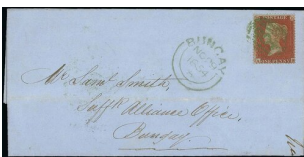 BUNGAY
NO
Mr. Saml. Smith,
Suffk. Alliance Office,
Bungay.